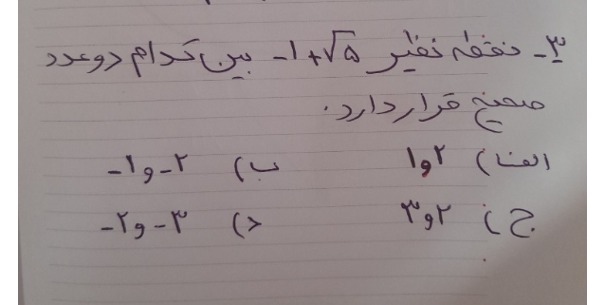 ۳- نقطه نظیر ۵√+۱- بین کدام دو عدد
صحیح قرار دارد.
الف) ۲ و ۱ ب) ۲- و ۱-
ج) ۲ و ۳ د) ۳- و ۲-